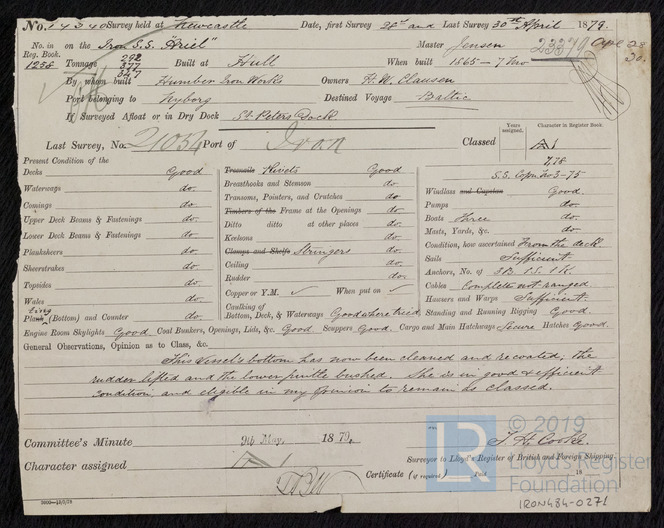 No. 14340 Survey held at Newcastle Date, first Survey 28th and Last Survey 30th April 1879.
No. in Reg. Book. 1238 on the Iron S.S. "Ariel" Master Jensen
Tonnage 292 277 247 Built at Hull When built 1865-7mo
By whom built Humber Iron Works Owners H.W. Clausen
Port belonging to Nyborg Destined Voyage Baltic
If Surveyed Afloat or in Dry Dock St Peters Dock
Years assigned. Character in Register Book.
Last Survey, No. 21054 Port of Iron Classed A1
7,78
S.S. Copn No 3-75
Present Condition of the
Decks Good
Waterways do.
Comings do.
Upper Deck Beams & Fastenings do.
Lower Deck Beams & Fastenings do.
Planksheers do.
Sheerstrakes do.
Topsides do.
Wales do.
Plank (Bottom) and Counter do.
Treenails Rivets Good
Breasthooks and Stemson do.
Transoms, Pointers, and Crutches do.
Timbers of the Frame at the Openings do.
Ditto ditto at other places do.
Keelsons do.
Clamps and Shelfs Stringers do.
Ceiling do.
Rudder do.
Copper or Y.M. ✓ When put on ✓
Caulking of Bottom, Deck, & Waterways Good where tried
Windlass and Capstan Good.
Pumps do.
Boats three do.
Masts, Yards, &c. do.
Condition, how ascertained From the deck
Sails Sufficient.
Anchors, No. of 3B. 1S. 1K.
Cables Complete not ranged.
Hawsers and Warps Sufficient.
Standing and Running Rigging Good.
Engine Room Skylights Good Coal Bunkers, Openings, Lids, &c. Good. Scuppers Good. Cargo and Main Hatchways Secure Hatches Good.
General Observations, Opinion as to Class, &c.
This vessel's bottom has now been cleaned and recoated, the
rudder lifted and the lower pintle bushed. She is in good & efficient
condition, and eligible in my opinion to remain as classed.
Committee's Minute 9th May, 1879.
Character assigned A1
T. H. Cooke.
Surveyor to Lloyd's Register of British and Foreign Shipping.
Certificate (if required) Paid 18
© 2019
LR
Lloyd's Register
Foundation
IRON484-0271